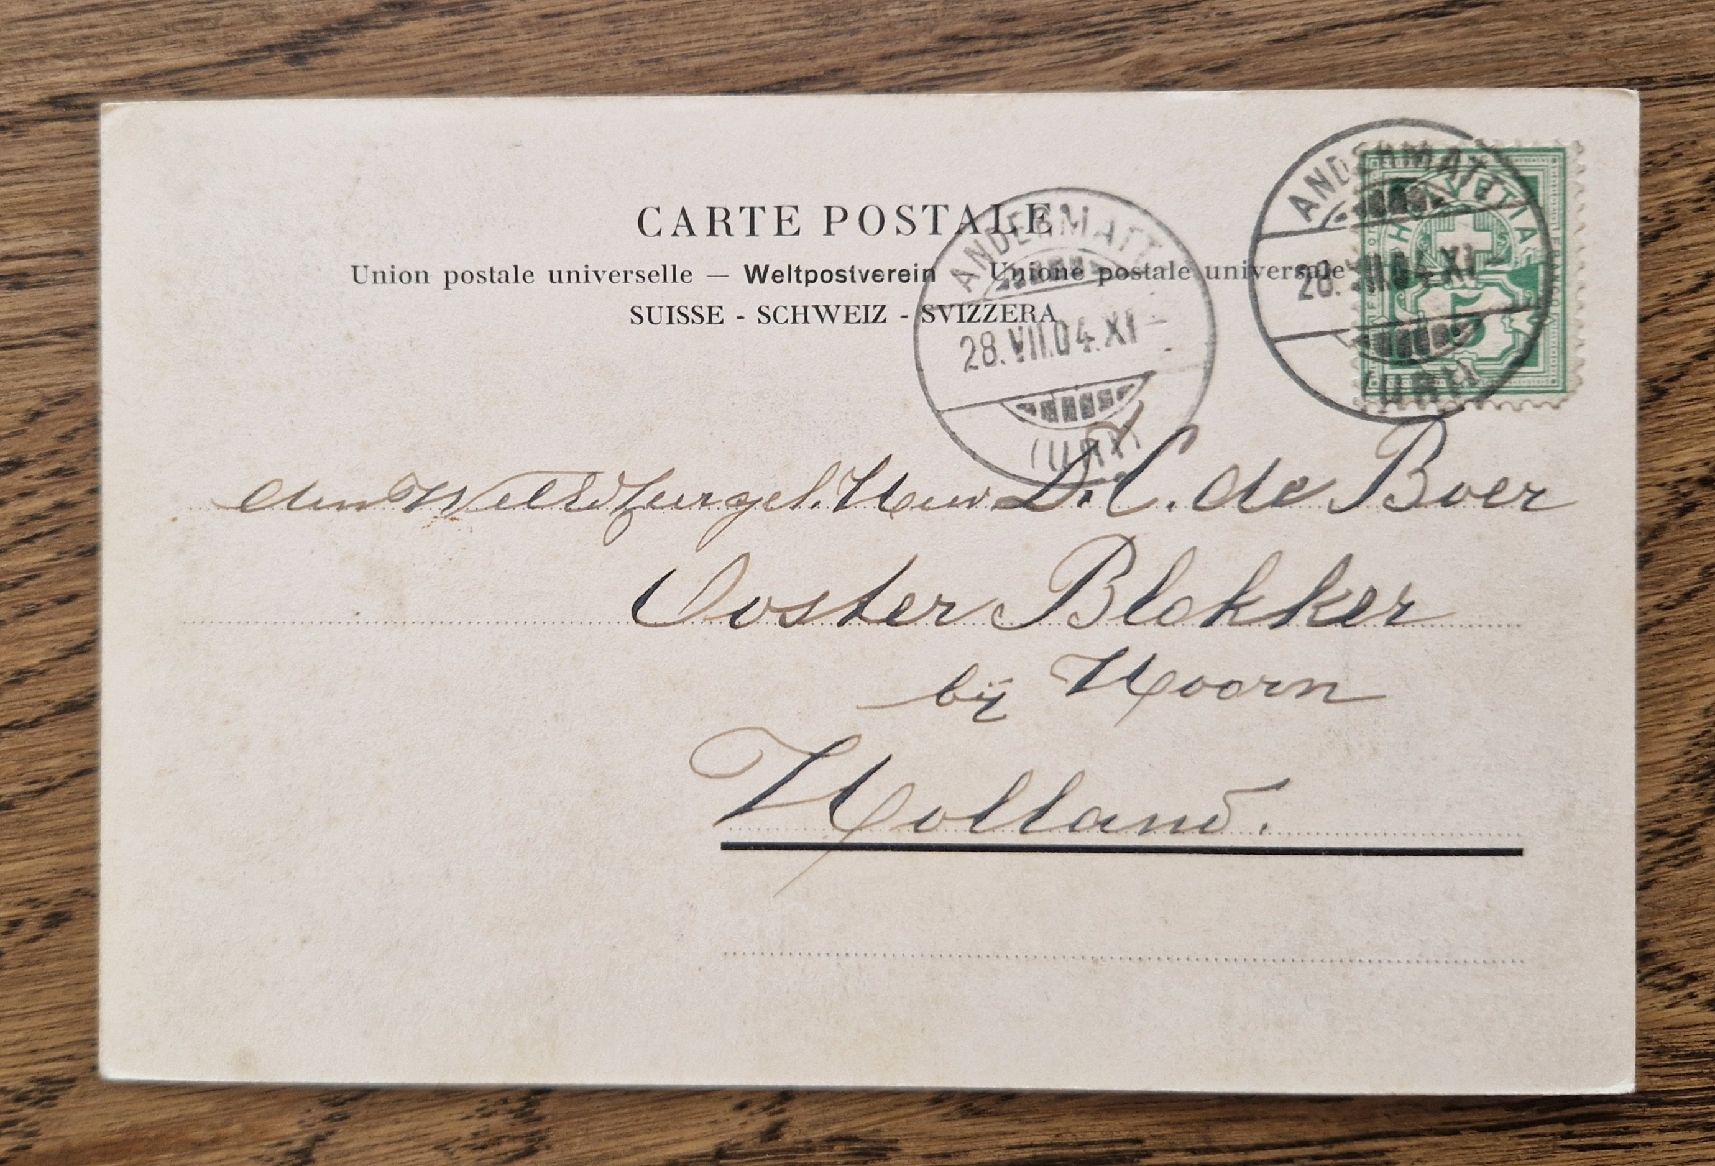 CARTE POSTALE
Union postale universelle — Weltpostverein Unione postale universale
SUISSE - SCHWEIZ - SVIZZERA
ANDERMATT
28.VII.04.XI-
(URI)
ANDERMATT
28.VII.04.XI-
(URI)
HELVETIA
5
den WelEd. Heer D. C. de Boer
Ooster Blokker
bij Hoorn
Holland.